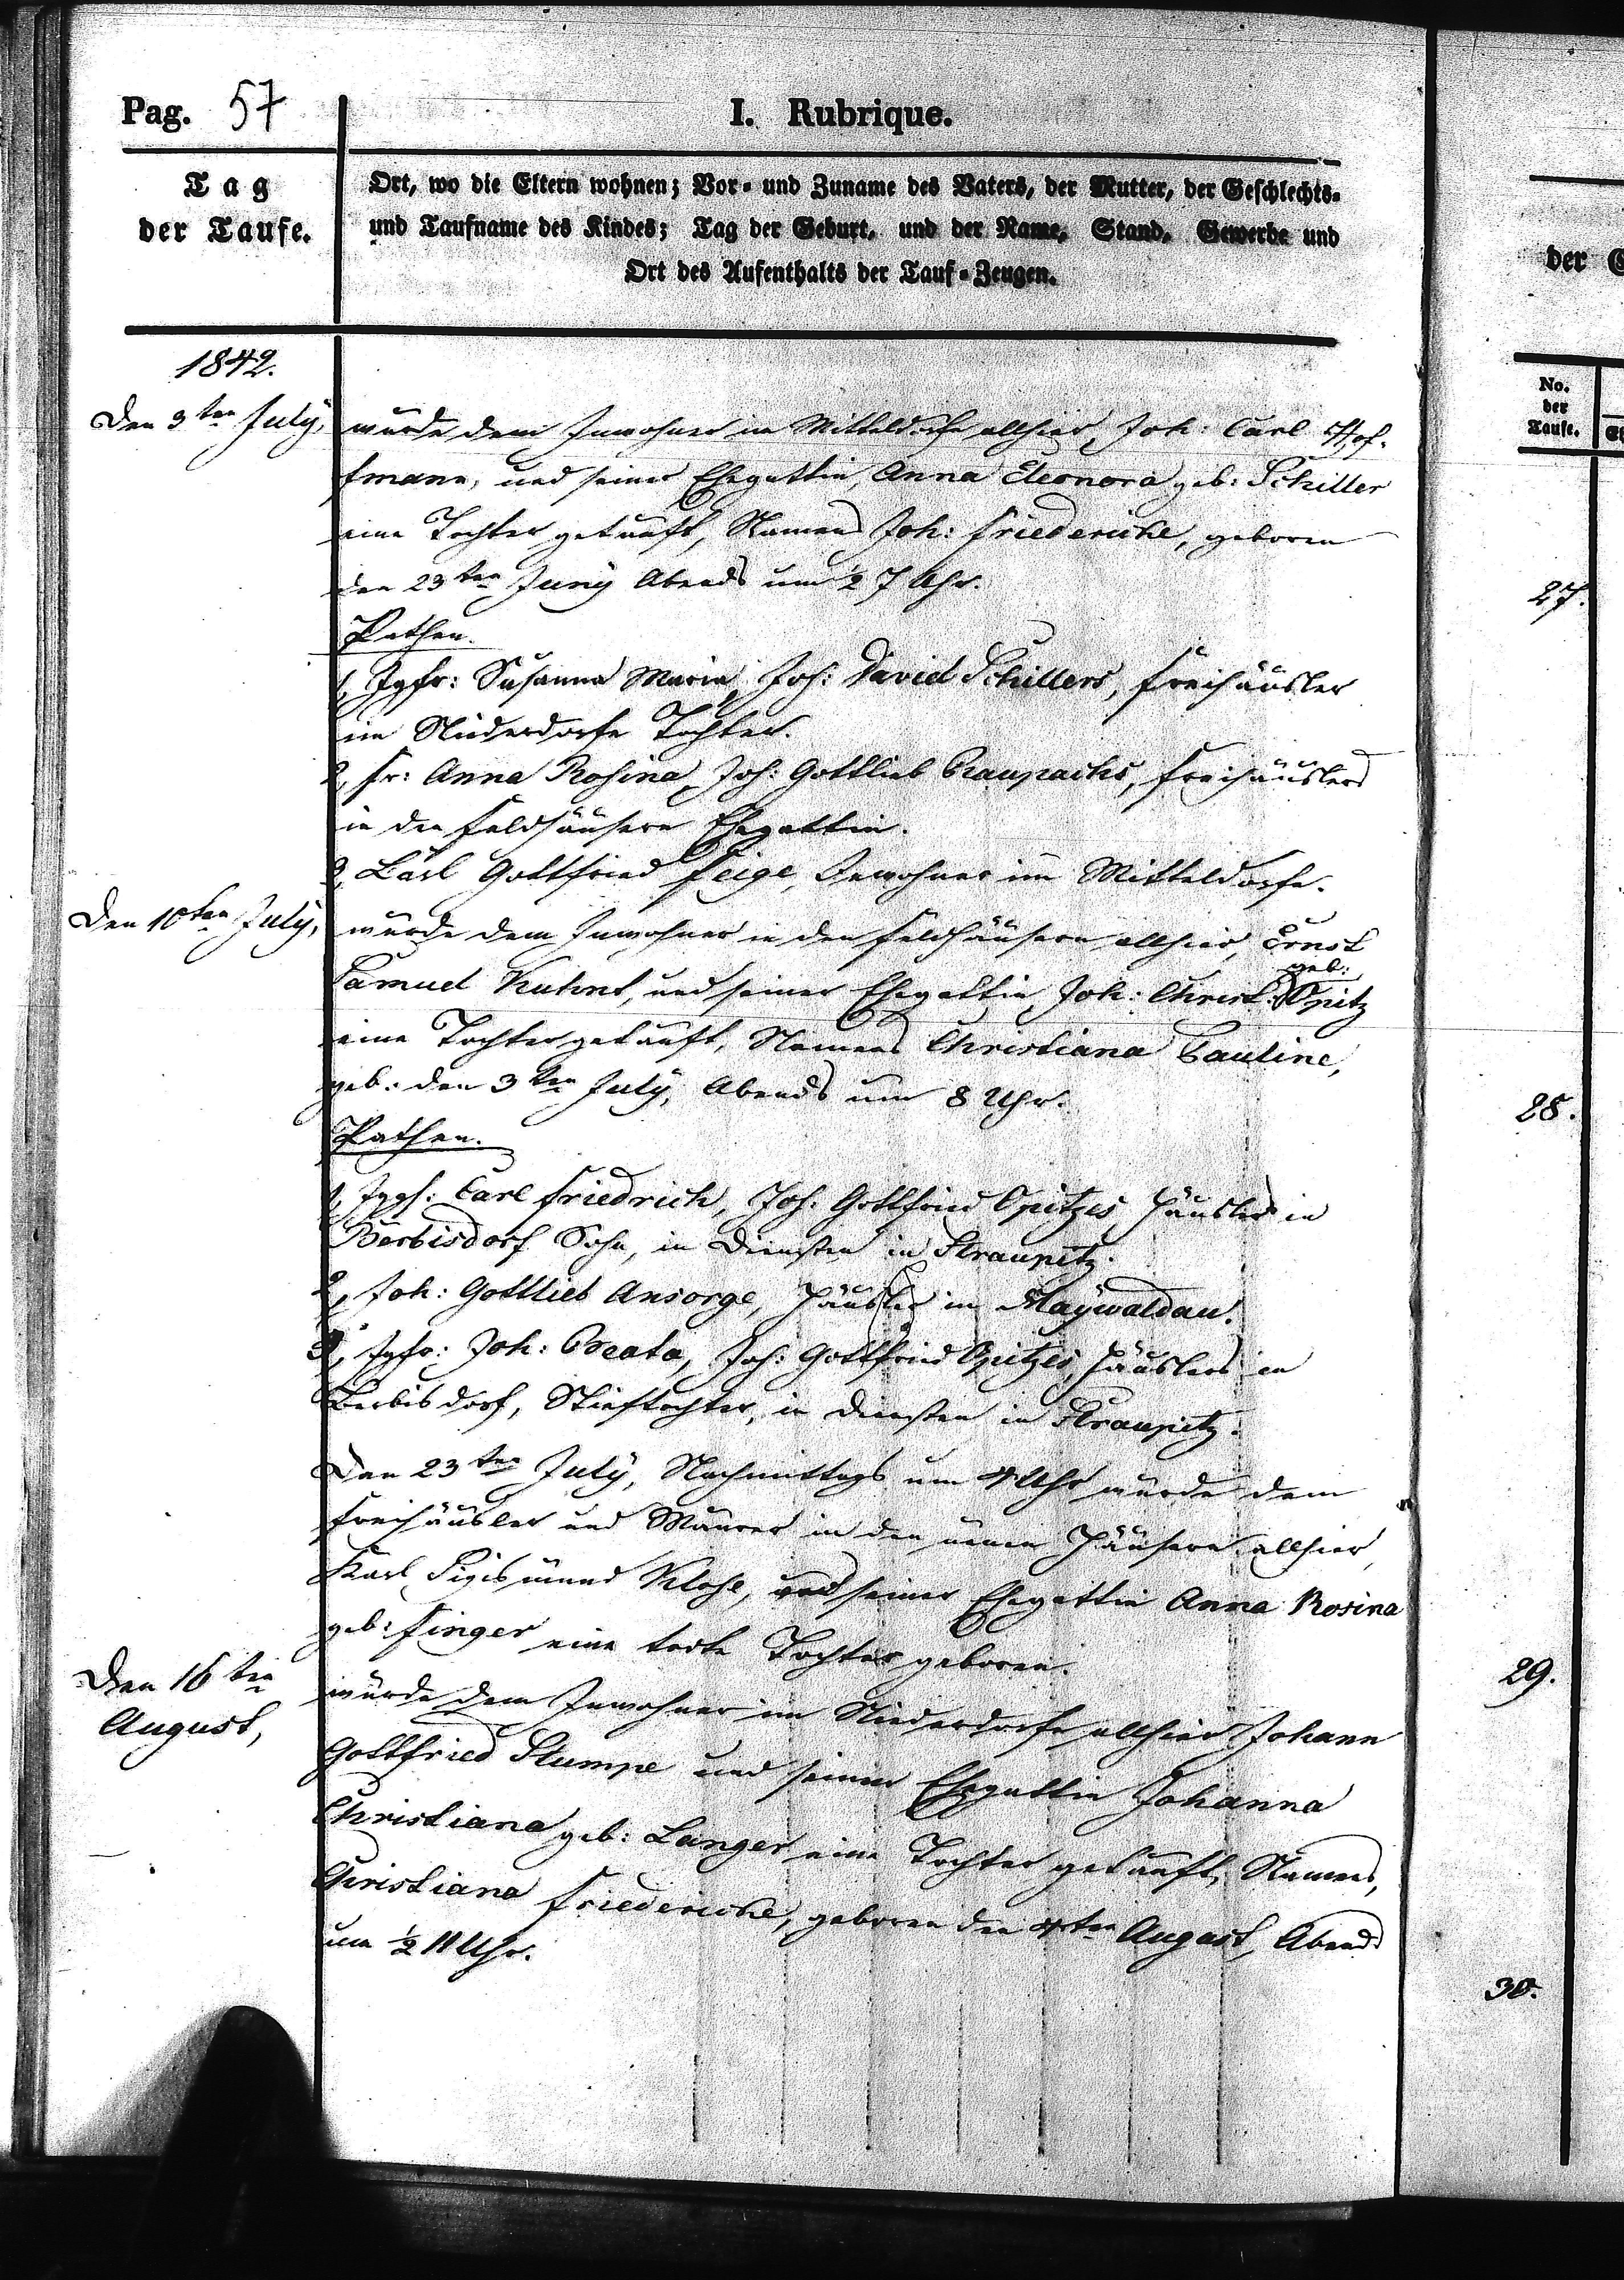 Pag. 57
I. Rubrique.
Tag
der Taufe.
Ort, wo die Eltern wohnen; Vor- und Zuname des Vaters, der Mutter, der Geschlechts-
und Taufname des Kindes; Tag der Geburt, und der Name, Stand, Gewerbe und
Ort des Aufenthalts der Tauf-Zeugen.
1842.
Den 3ten July, wurde dem Inwohner im Mitteldorfe allhier, Joh: Carl Hof-
fmann, und seiner Ehegattin, Anna Eleonora geb: Schiller
eine Tochter getauft, Namens Joh: Friedericke, geboren
den 23ten Juny Abends um ½ 7 Uhr.
Pathen.
1, Jgfr: Susanna Maria, Joh: David Schillers, Freihäusler
im Niederdorfe Tochter.
2, Fr: Anna Rosina, Joh: Gottlieb Raupachs, Freihäuslers
in den Feldhäusern Ehegattin.
3, Carl Gottfried Feige, Inwohner im Mitteldorfe.
Den 10ten July, wurde dem Inwohner in den Feldhäusern allhier, Ernst
Samuel Kuhnt, und seiner Ehegattin, Joh: Christ: geb: Opitz
eine Tochter getauft, Namens Christiana Pauline,
geb: den 3ten July, Abends um 8 Uhr.
Pathen.
1, Jggs: Carl Friedrich, Joh: Gottfried Opitzes, Häusler in
Berbisdorf Sohn, in Diensten in Straupitz.
2, Joh: Gottlieb Ansorge, Häusler in Maywaldau.
3, Jgfr: Joh: Beata, Joh: Gottfried Opitzes, Häuslers in
Berbisdorf, Stieftochter, in Diensten in Straupitz.
Den 23ten July, Nachmittags um 4 Uhr wurde dem
Freihäusler und Maurer in den neuen Häusern allhier,
Karl Sigismund Klose, und seiner Ehegattin Anna Rosina
geb: Finger eine todte Tochter geboren.
Den 16ten
August,
wurde dem Inwohner im Niederdorfe allhier Johann
Gottfried Stumpe und seiner Ehegattin Johanna
Christiana geb: Langer eine Tochter getauft, Namens,
Christiana Friedericke, geboren den 4ten August, Abends
um ½ 11 Uhr.
No.
der
Taufe.
27.
28.
29.
30.